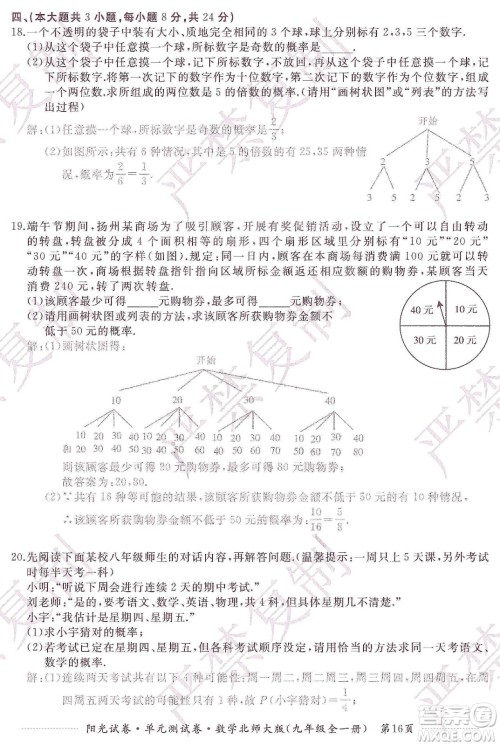 四、(本大题共 3 小题,每小题 8 分,共 24 分)
18.一个不透明的袋子中装有大小、质地完全相同的 3 个球,球上分别标有 2,3,5 三个数字.
(1)从这个袋子中任意摸一个球,所标数字是奇数的概率是____.
(2)从这个袋子中任意摸一个球,记下所标数字,不放回,再从这个袋子中任意摸一个球,记下所标数字,将第一次记下的数字作为十位数字,第二次记下的数字作为个位数字,组成一个两位数,求所组成的两位数是 5 的倍数的概率.(请用“画树状图”或“列表”的方法写出过程)
解:(1)任意摸一个球,所标数字是奇数的概率是2/3.
(2)如图所示:共有 6 种情况,其中是 5 的倍数的有 25,35 两种情况,概率为2/6=1/3.
开始
2 3 5
3 5 2 5 2 3
19.端午节期间,扬州某商场为了吸引顾客,开展有奖促销活动,设立了一个可以自由转动的转盘,转盘被分成 4 个面积相等的扇形,四个扇形区域里分别标有“10 元”“20 元”“30 元”“40 元”的字样(如图).规定:同一日内,顾客在本商场每消费满 100 元就可以转动转盘一次,商场根据转盘指针指向区域所标金额返还相应数额的购物券,某顾客当天消费 240 元,转了两次转盘.
(1)该顾客最少可得____元购物券,最多可得____元购物券;
(2)请用画树状图或列表的方法,求该顾客所获购物券金额不低于 50 元的概率.
40 元 10 元
30 元 20 元
解:(1)画树状图得:
开始
10 20 30 40
10 20 30 40 10 20 30 40 10 20 30 40 10 20 30 40
20 30 40 50 30 40 50 60 40 50 60 70 50 60 70 80
则该顾客最少可得 20 元购物券,最多可得 80 元购物券.
故答案为:20,80.
(2)∵共有 16 种等可能的结果,该顾客所获购物券金额不低于 50 元的有 10 种情况,
∴该顾客所获购物券金额不低于 50 元的概率为:10/16=5/8.
20.先阅读下面某校八年级师生的对话内容,再解答问题.(温馨提示:一周只上 5 天课,另外考试时每半天考一科)
小明:“听说下周会进行连续 2 天的期中考试.”
刘老师:“是的,要考语文、数学、英语、物理,共 4 科,但具体星期几不清楚.”
小宇:“我估计是星期四、星期五.”
(1)求小宇猜对的概率;
(2)若考试已定在星期四、星期五进行,但各科考试顺序没定,请用恰当的方法求同一天考语文、数学的概率.
解:(1)连续两天考试共有以下 4 种可能情况:周一周二 周二周三 周三周四 周四周五,在周四周五两天考试的可能情况只有一种,因此小宇猜对的概率是1/4.
阳光试卷·单元测试卷·数学北师大版(九年级全一册) 第16页
严禁复制
严禁复制
严禁复制
严禁复制